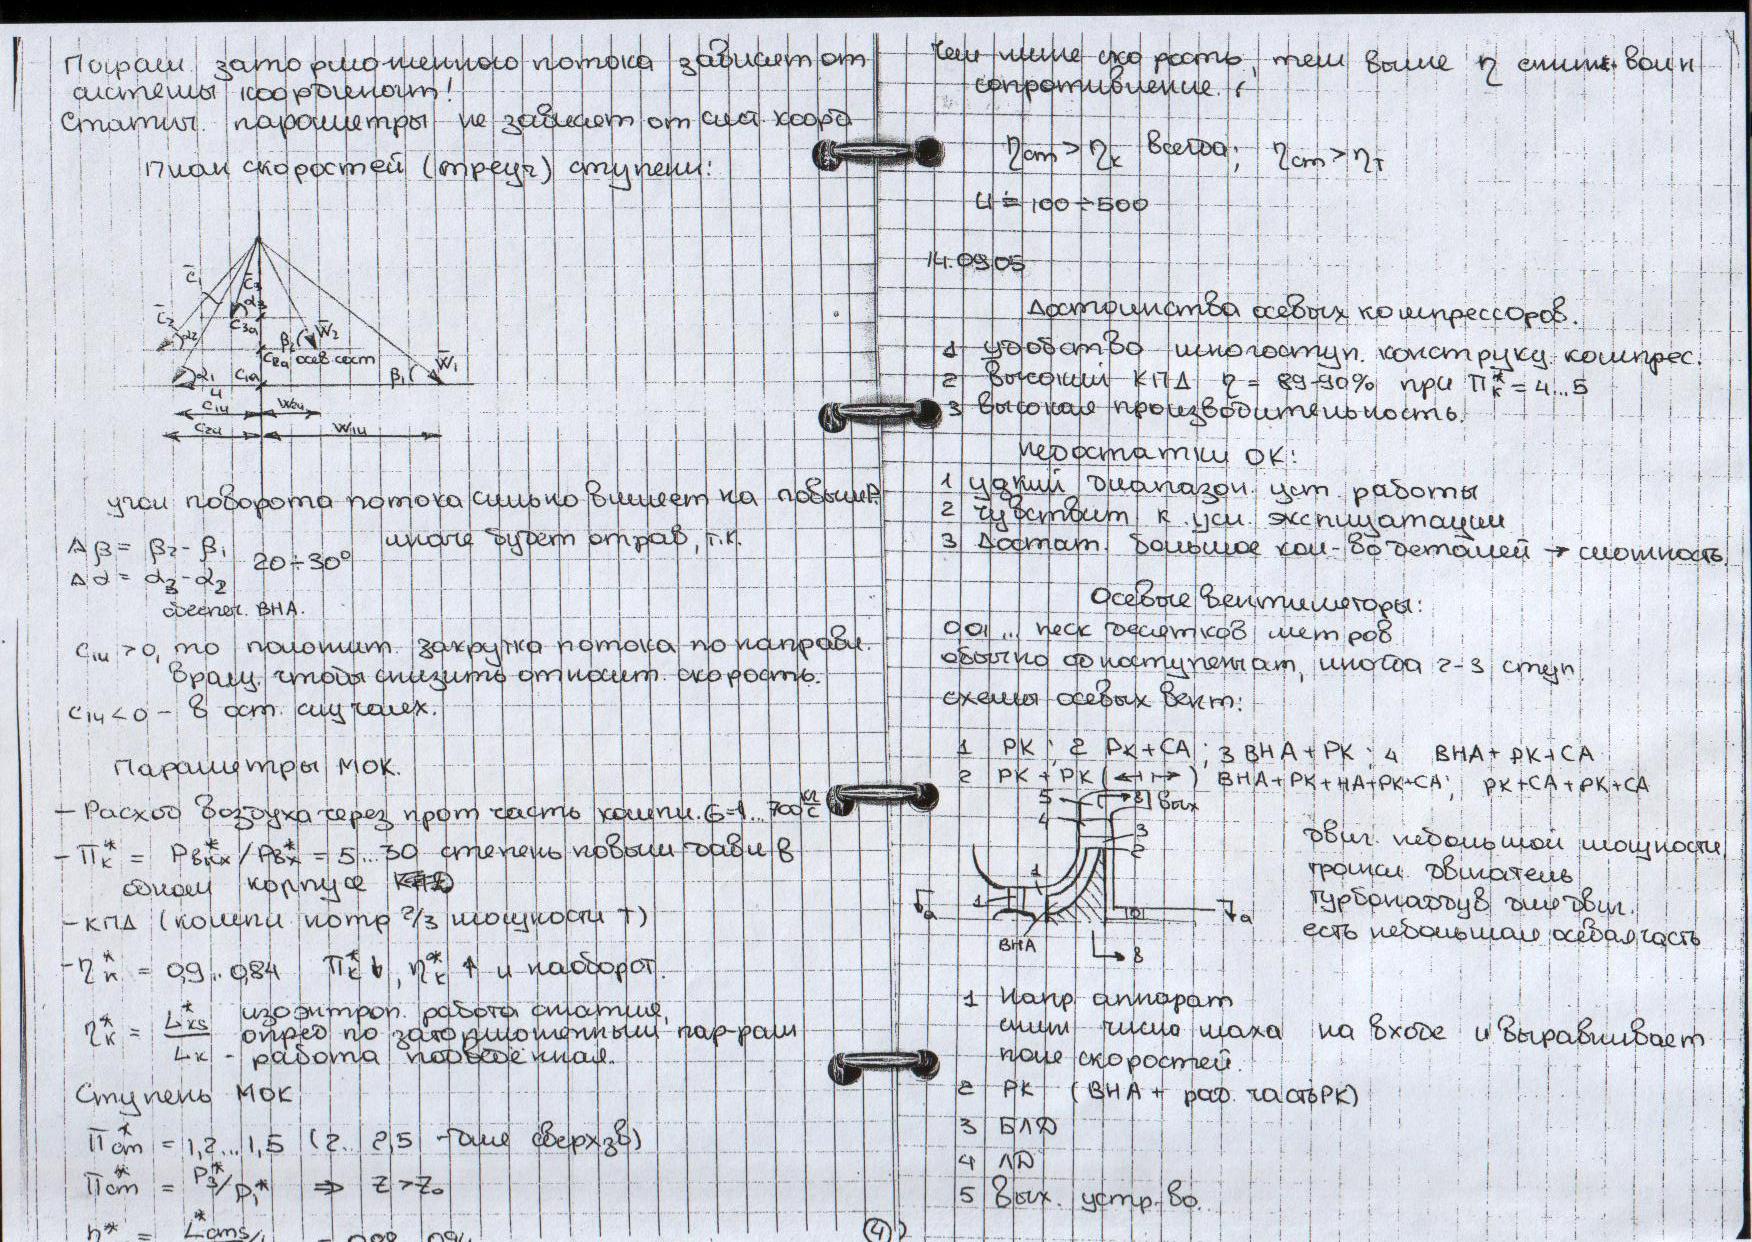 Парам. заторможенного потока зависят от
системы координат!
Статич. параметры не зависят от сист. коорд
План скоростей (треуг) ступени:
c̄₁
c̄₂
c̄₃
α₃
α₂
c₃ₐ
β₂
w̄₂
c₂ₐ осев сост
α₁
c₁ₐ
β₁
w̄₁
u
c₁ᵤ
w₂ᵤ
c₂ᵤ
w₁ᵤ
угол поворота потока сильно влияет на повыш P.
Δβ = β₂ - β₁
20÷30°
иначе будет отрыв, т.к.
Δα = α₃ - α₂
обеспеч. ВНА.
c₁ᵤ > 0, то положит. закрутка потока по направл.
вращ. чтобы снизить относит. скорость.
c₁ᵤ < 0 – в ост. случаях.
Параметры МОК.
– Расход воздуха через прот часть компр. G=1...700 кг/с
– Πк* = Pвых*/Pвх* = 5...30 степень повыш давл в
одном корпусе
– КПД (компр потр 2/3 мощности Т)
– ηк* = 0,9...0,84 Πк* ↓, ηк* ↑ и наоборот.
ηк* = Lкs*/Lк
изоэнтроп. работа сжатия,
опред по заторможенным пар-рам
– работа подведённая.
Ступень МОК
Πст* = 1,2...1,5 (2.. 2,5 – для сверхзв)
Πст* = P₃*/P₁* ⇒ z > z₀
η* = L*стs/
Чем ниже скорость, тем выше η
сопротивление.
ηст > ηк всегда; ηст > ηт
u = 100÷500
14.09.05
Достоинства осевых компрессоров.
1 удобство многоступ. конструкц. компрес.
2 высокий КПД η = 89-90% при Πк* = 4...5
3 высокая производительность.
Недостатки ОК:
1 узкий диапазон уст. работы
2 чувствит к усл. эксплуатации
3 Достат. большое кол-во деталей → сложность.
Осевые вентиляторы:
0,01... неск десятков метров
обычно одноступенчат, иногда 2-3 ступ.
схемы осевых вент:
1 РК; 2 РК+СА; 3 ВНА+РК; 4 ВНА+РК+СА
2 РК+РК (←|→) ВНА+РК+НА+РК+СА; РК+СА+РК+СА
5
4
вых
3
2
1
1
ВНА
8
двиг. небольшой мощности,
двигатель
турбонаддув для двиг.
есть небольшая осевая часть
1 Напр аппарат
сниж число маха на входе и выравнивает
поле скоростей.
2 РК (ВНА + рад. часть РК)
3 БЛД
4 ЛД
5 Вых. устр-во.
4